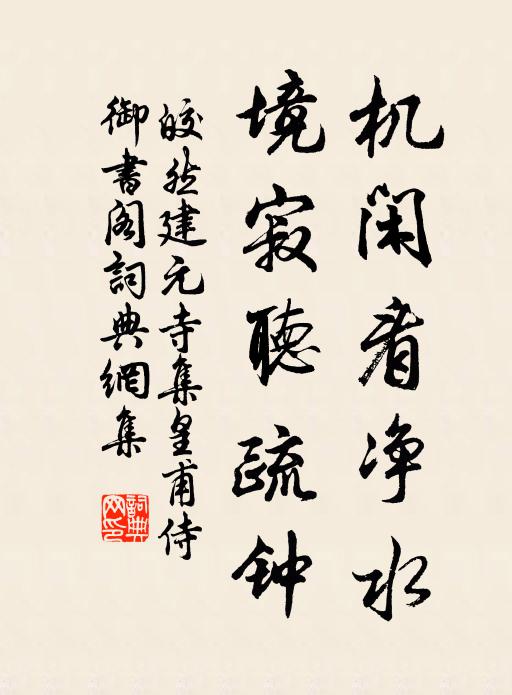 机闲看净水
境寂聽疏钟
皎然建元寺集皇甫侍
御書阁詞典網集
詞典网印